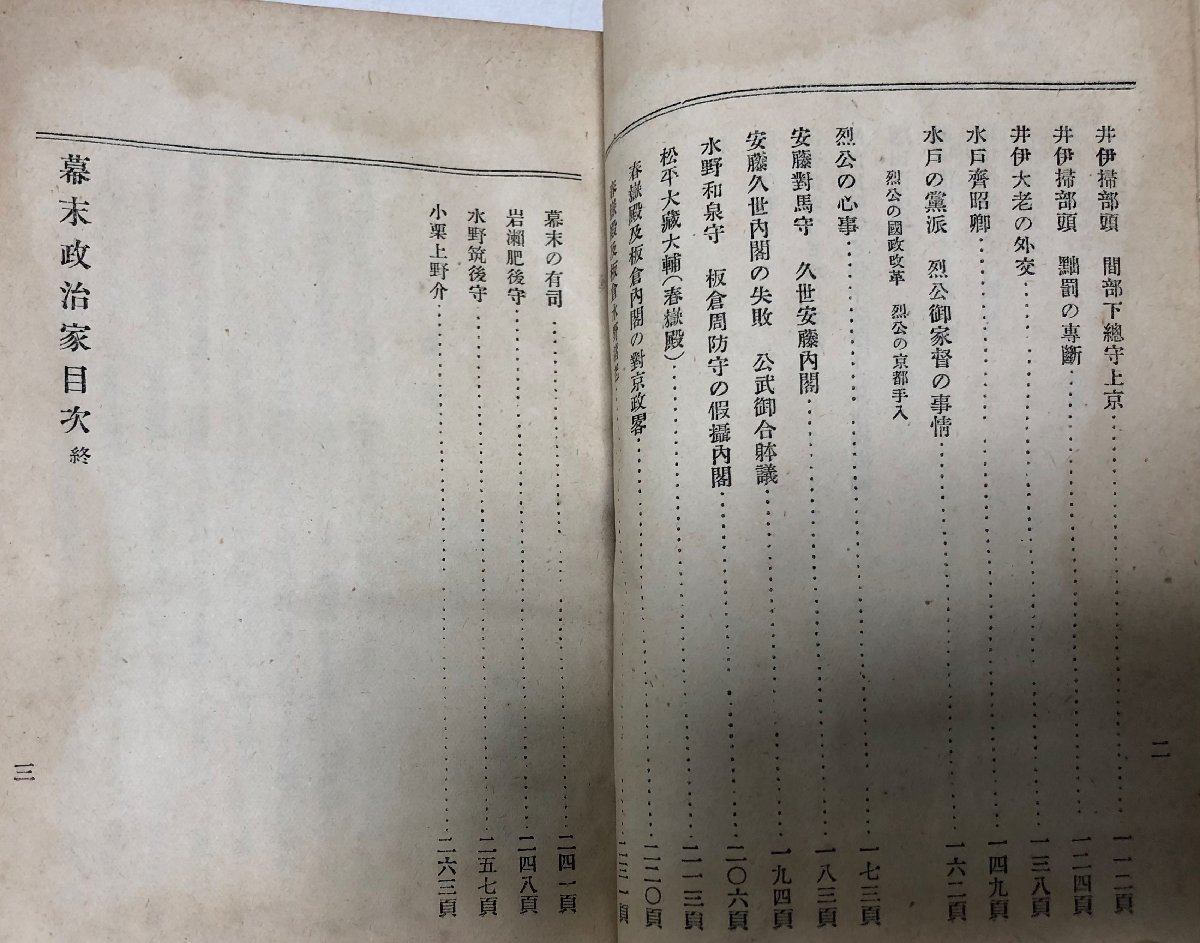 井伊掃部頭 間部下總守上京……一一二頁
井伊掃部頭 黜罰の專斷……一二四頁
井伊大老の外交……一三八頁
水戸齊昭卿……一四九頁
水戸の黨派 烈公御家督の事情……一六二頁
烈公の國政改革 烈公の京都手入
烈公の心事……一七三頁
安藤對馬守 久世安藤內閣……一八三頁
安藤久世內閣の失敗 公武御合躰議……一九四頁
水野和泉守 板倉周防守の假攝內閣……二〇六頁
松平大藏大輔(春嶽殿)……二一三頁
春嶽殿及板倉內閣の對京政畧……二二〇頁
春嶽殿及板倉水野……二三一頁
二
幕末の有司……二四一頁
岩瀨肥後守……二四八頁
水野筑後守……二五七頁
小栗上野介……二六三頁
幕末政治家目次 終
三